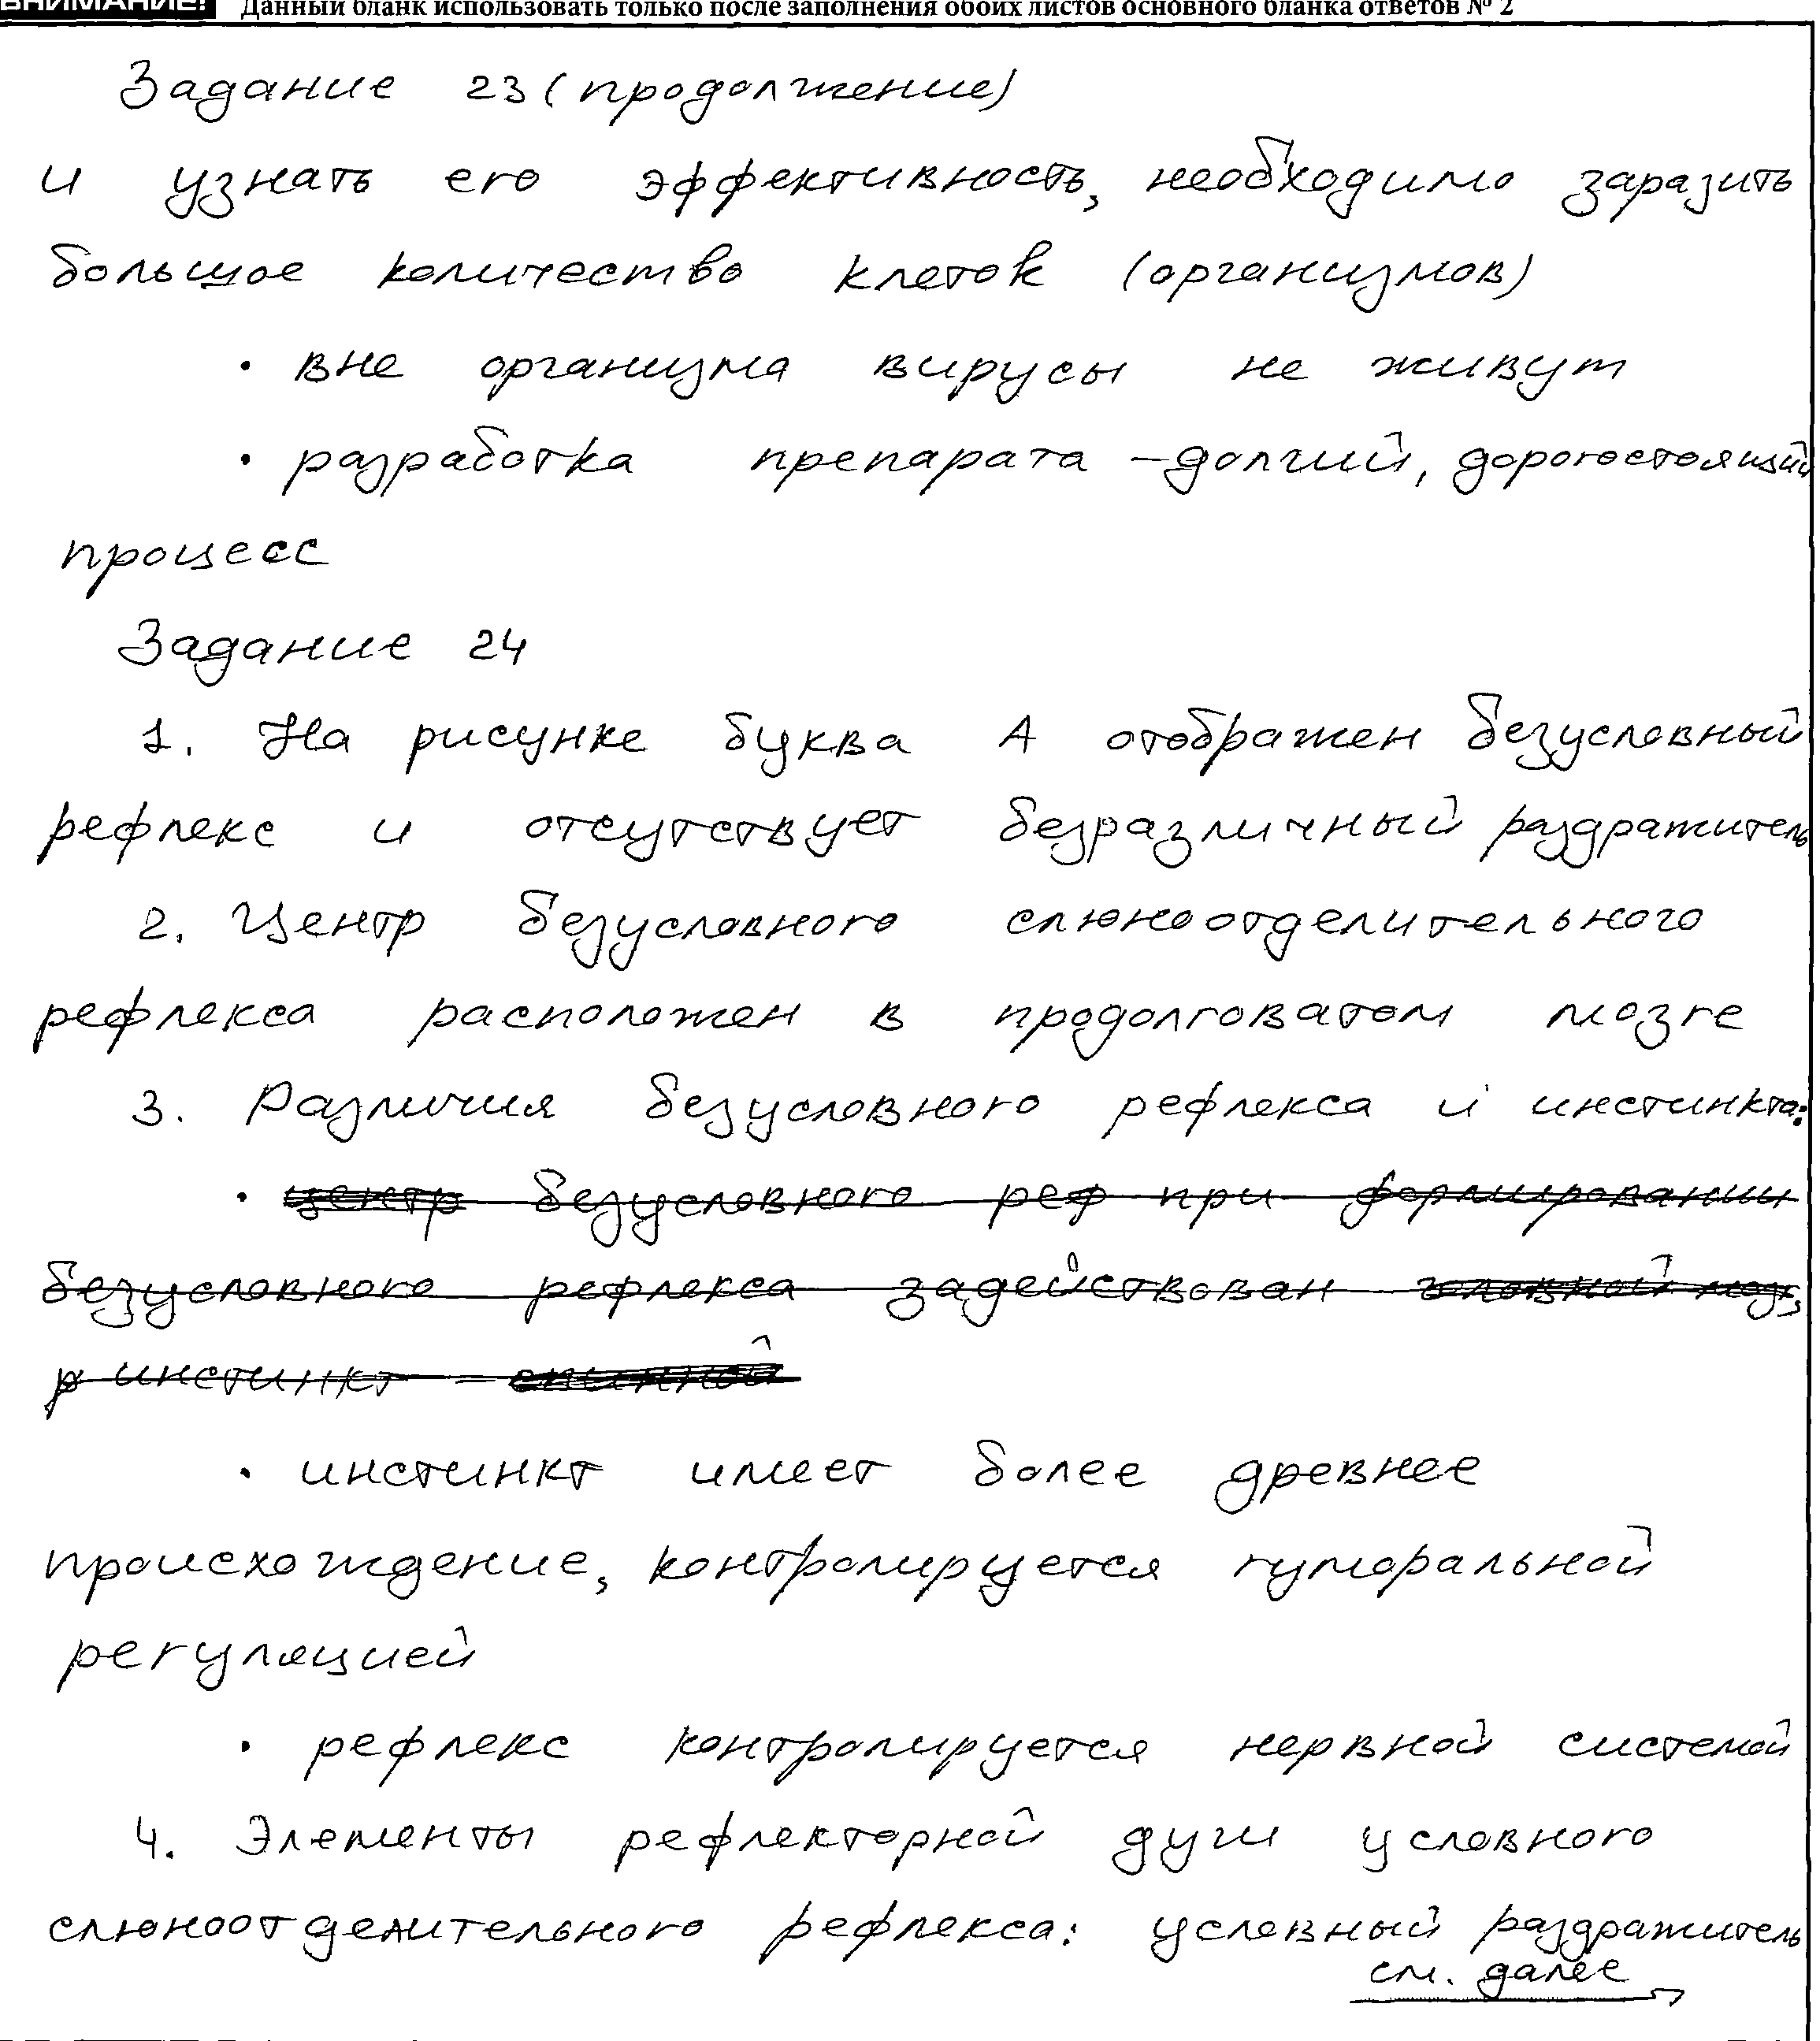 ВНИМАНИЕ! Данный бланк использовать только после заполнения обоих листов основного бланка ответов № 2
Задание 23 (продолжение)
и узнать его эффективность, необходимо заразить
большое количество клеток (организмов)
· вне организма вирусы не живут
· разработка препарата – долгий, дорогостоящий
процесс
Задание 24
1. На рисунке буква А отображен безусловный
рефлекс и отсутствует безразличный раздражитель
2. Центр безусловного слюноотделительного
рефлекса расположен в продолговатом мозге
3. Различия безусловного рефлекса и инстинкта:
· центр безусловного реф при формировании
безусловного рефлекса задействован головной мозг,
р инстинкт – спинной
· инстинкт имеет более древнее
происхождение, контролируется гуморальной
регуляцией
· рефлекс контролируется нервной системой
4. Элементы рефлекторной дуги условного
слюноотделительного рефлекса: условный раздражитель
см. далее